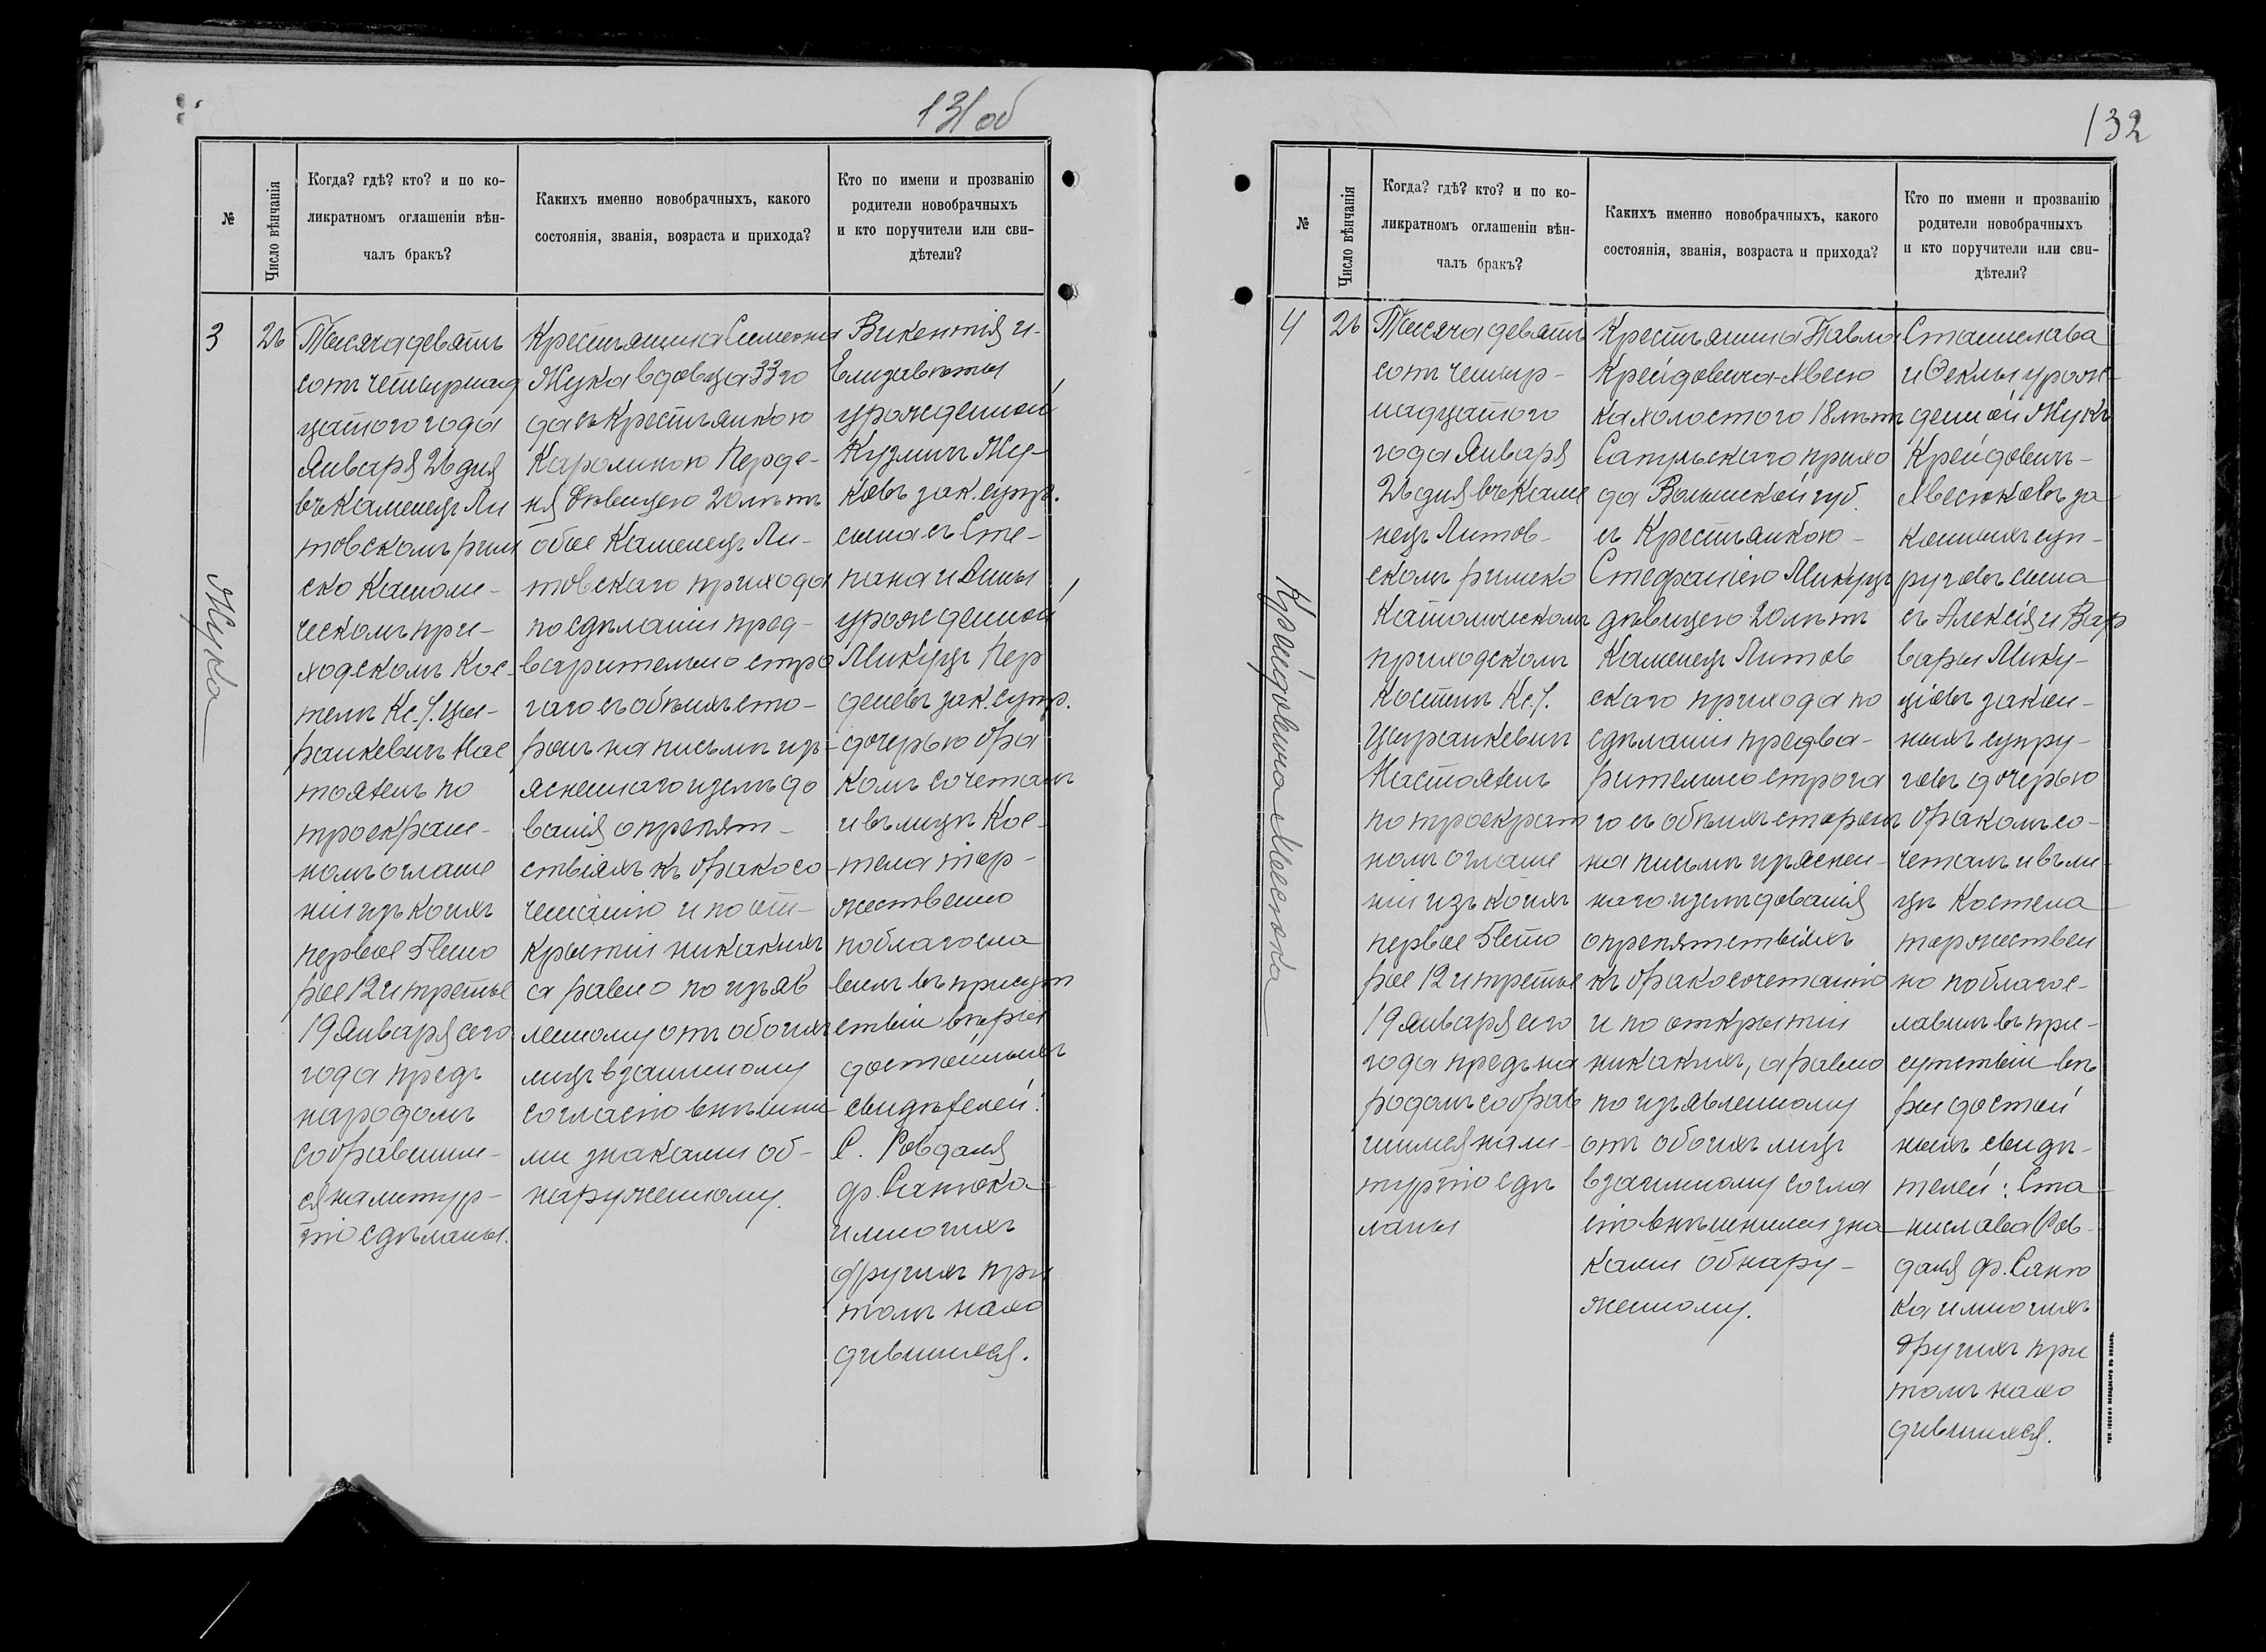 131 об
№
Число вѣнчанія
Когда? гдѣ? кто? и по ко-
ликратномъ оглашеніи вѣн-
чалъ бракъ?
Какихъ именно новобрачныхъ, какого
состоянія, званія, возраста и прихода?
Кто по имени и прозванію
родители новобрачныхъ
и кто поручители или сви-
дѣтели?
3
26
Жука
Тысяча девять
сотъ четырнад
цатого года
Января 26 дня
въ Каменецъ Ли
товскомъ рим
ско Католи-
ческомъ при-
ходскомъ Кос-
телѣ Кс. І. Цы-
ранкевичъ Нас
тоятель по
троекрат-
номъ оглаше
ніи изъ коихъ
первое 5 вто
рое 12 и третье
19 Января сего
года предъ
народомъ
собравшим-
ся на литур-
гію сдѣланы.
Крестьянина Симеона
Жука вдовца 33 го
да съ Крестьянкою
Каролиною Перде-
ня дѣвицею 20 лѣтъ
обое Каменецъ Ли-
товскаго прихода
по сдѣланіи пред-
варительно стро
гаго съ обѣихъ сто-
ронъ на письмѣ изъ-
ясненнаго изслѣдо
ванія о препят-
ствіяхъ къ бракосо-
четанію и по от-
крытіи никакихъ
а равно по изъяв
ленному отъ обоихъ
лицъ взаимному
согласію внѣшни
ми знаками об-
наруженному.
Викентія и-
Елизаветы
урожденной
Кузмичъ Жу-
ковъ зак. супр.
сына съ Сте-
пана и Анны
урожденной
Микуцъ Пер
деневъ зак. супр.
дочерью бра
комъ сочеталъ
и въ лицѣ Кос-
тела тор-
жественно
поблагосла
вилъ въ присут
ствіи вѣры
достойныхъ
свидѣтелей:
С. Ровданя
Ф. Санюка
и многихъ
другихъ при
томъ нахо
дившихся.
132
№
Число вѣнчанія
Когда? гдѣ? кто? и по ко-
ликратномъ оглашеніи вѣн-
чалъ бракъ?
Какихъ именно новобрачныхъ, какого
состоянія, званія, возраста и прихода?
Кто по имени и прозванію
родители новобрачныхъ
и кто поручители или сви-
дѣтели?
4
26
Тысяча девять
сотъ четыр-
надцатого
года Января
26 дня въ Каме
нецъ Литов-
скомъ римско
Католическомъ
приходскомъ
Костелѣ Кс. І.
Цыранкевичъ
Настоятель
по троекрат
номъ оглаше
ніи изъ коихъ
первое 5 вто
рое 12 и третье
19 Января сего
года предъ на
родомъ собрав
шимся на ли-
тургію сдѣ
ланы
Крестьянина Павла
ка холостого 18 лѣтъ
прихо
да Волынской губ.
съ Крестьянкою-
Стефаніею Микуцъ
дѣвицею 20 лѣтъ
Каменецъ Литов
скаго прихода по
сдѣланіи предва-
рительно строга
го съ обѣихъ сторонъ
на письмѣ изъяснен-
наго изслѣдованія
о препятствіяхъ
къ бракосочетанію
и по открытіи
никакихъ, а равно
по изъявленному
отъ обоихъ лицъ
взаимному согла
сію внѣшними зна
ками обнару-
женному.
Станислава
и Феклы урож-
денной Жукъ
Крейдовичъ-
за
конныхъ суп-
руговъ сына
съ Алексія и Вар
вары Мику-
цовъ закон-
ныхъ супру-
говъ дочерью
бракомъ со-
четалъ и въ ли-
цѣ Костела
торжествен
но поблагос-
лавилъ въ при-
сутствіи вѣ
ры достой
ныхъ свидѣ-
телей: Ста
нислава Ров-
даня Ф. Саню
ка и многихъ
другихъ при
томъ нахо
дившихся.